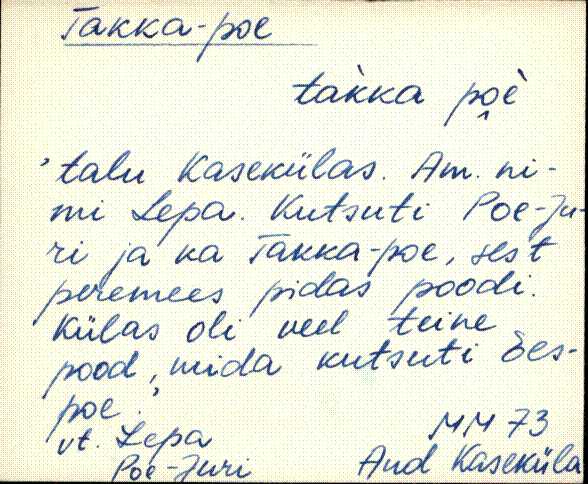 Takka-poe
tàkka po̭è
'talu Kasekülas. Am. ni-
mi Lepa. Kutsuti Poe-Ju-
ri ja ka Takka-poe, sest
peremees pidas poodi.
Külas oli veel teine
pood, mida kutsuti Ees-
poe.'
vt. Lepa
Poe-Juri
MM 73
Aud Kaseküla